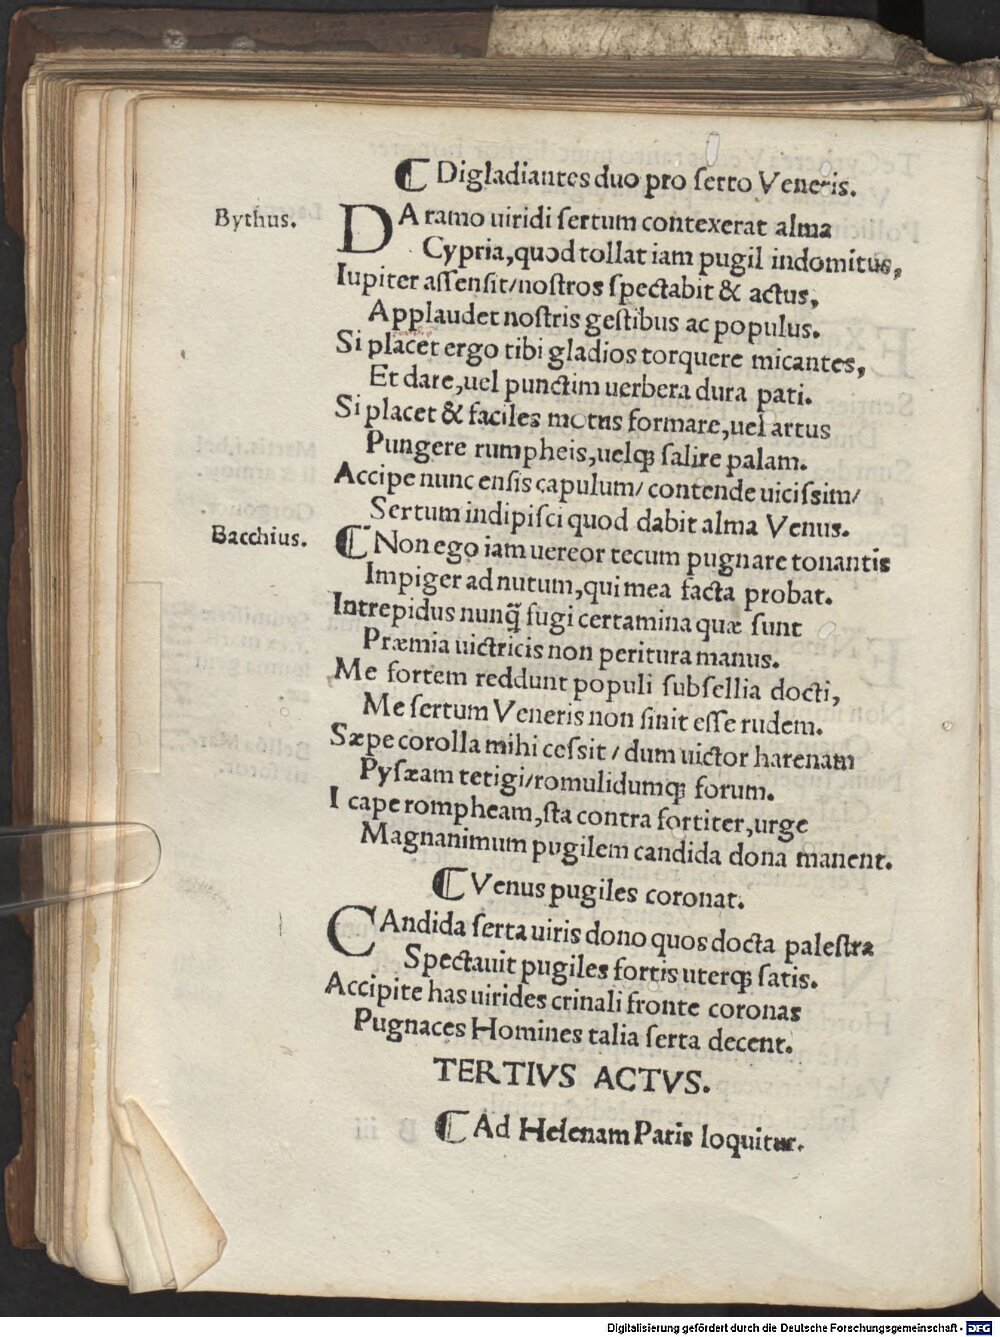 ❡ Digladiantes duo pro serto Veneris.
Bythus.
DA ramo uiridi sertum contexerat alma
Cypria, quod tollat iam pugil indomitus,
Iupiter assensit/nostros spectabit & actus,
Applaudet nostris gestibus ac populus.
Si placet ergo tibi gladios torquere micantes,
Et dare, uel punctim uerbera dura pati.
Si placet & faciles motus formare, uel artus
Pungere rumpheis, uelqꝫ salire palam.
Accipe nunc ensis capulum/ contende uicissim/
Sertum indipisci quod dabit alma Venus.
Bacchius.
❡ Non ego iam uereor tecum pugnare tonantis
Impiger ad nutum, qui mea facta probat.
Intrepidus nunq̃ fugi certamina quæ sunt
Præmia uictricis non peritura manus.
Me fortem reddunt populi subsellia docti,
Me sertum Veneris non sinit esse rudem.
Sæpe corolla mihi cessit / dum uictor harenam
Pysæam tetigi/romulidumqꝫ forum.
I cape rompheam, sta contra fortiter, urge
Magnanimum pugilem candida dona manent.
❡ Venus pugiles coronat.
CAndida serta uiris dono quos docta palestra
Spectauit pugiles fortis uterqꝫ satis.
Accipite has uirides crinali fronte coronas
Pugnaces Homines talia serta decent.
TERTIVS ACTVS.
❡ Ad Helenam Paris loquitur.
Digitalisierung gefördert durch die Deutsche Forschungsgemeinschaft - DFG